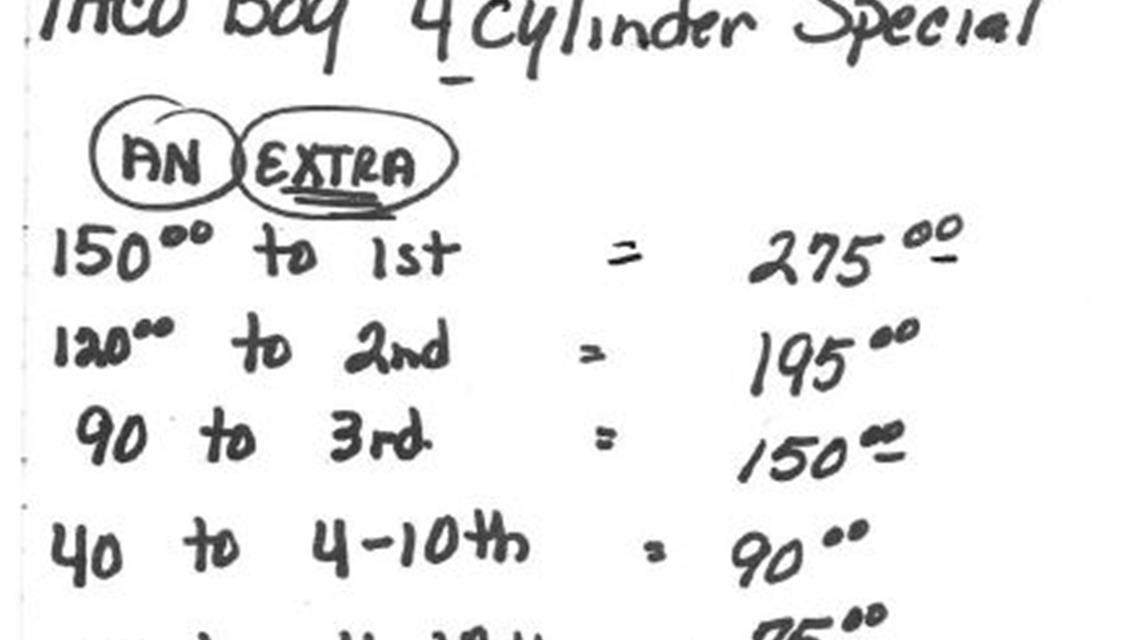 Taco Boy 4 Cylinder Special
AN EXTRA
150⁰⁰ to 1st = 275⁰⁰
120⁰⁰ to 2nd = 195⁰⁰
90 to 3rd = 150⁰⁰
40 to 4-10th = 90⁰⁰
75⁰⁰